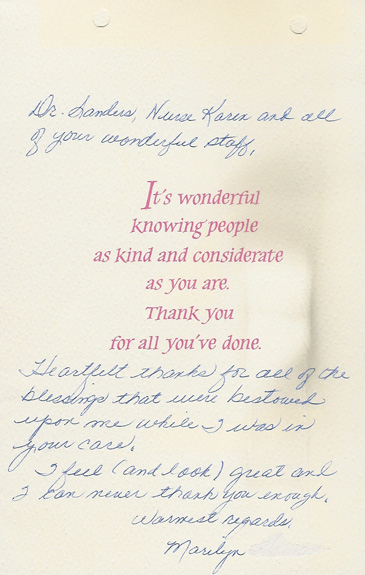 Dr. Sanders, Nurse Karen and all
of your wonderful staff,
It's wonderful
knowing people
as kind and considerate
as you are.
Thank you
for all you've done.
Heartfelt thanks for all of the
blessings that were bestowed
upon me while I was in
your care.
I feel (and look) great and
I can never thank you enough.
Warmest regards,
Marilyn